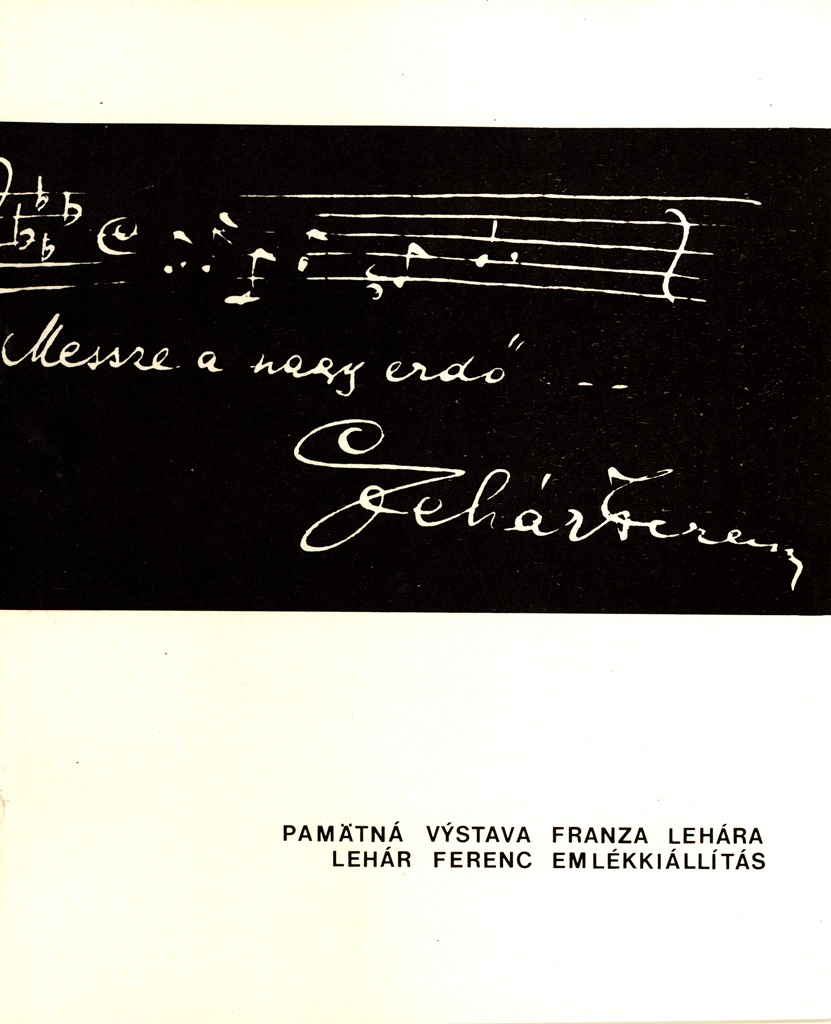 Messze a nagy erdő" - -
Lehár Ferenc
PAMÄTNÁ VÝSTAVA FRANZA LEHÁRA
LEHÁR FERENC EMLÉKKIÁLLÍTÁS